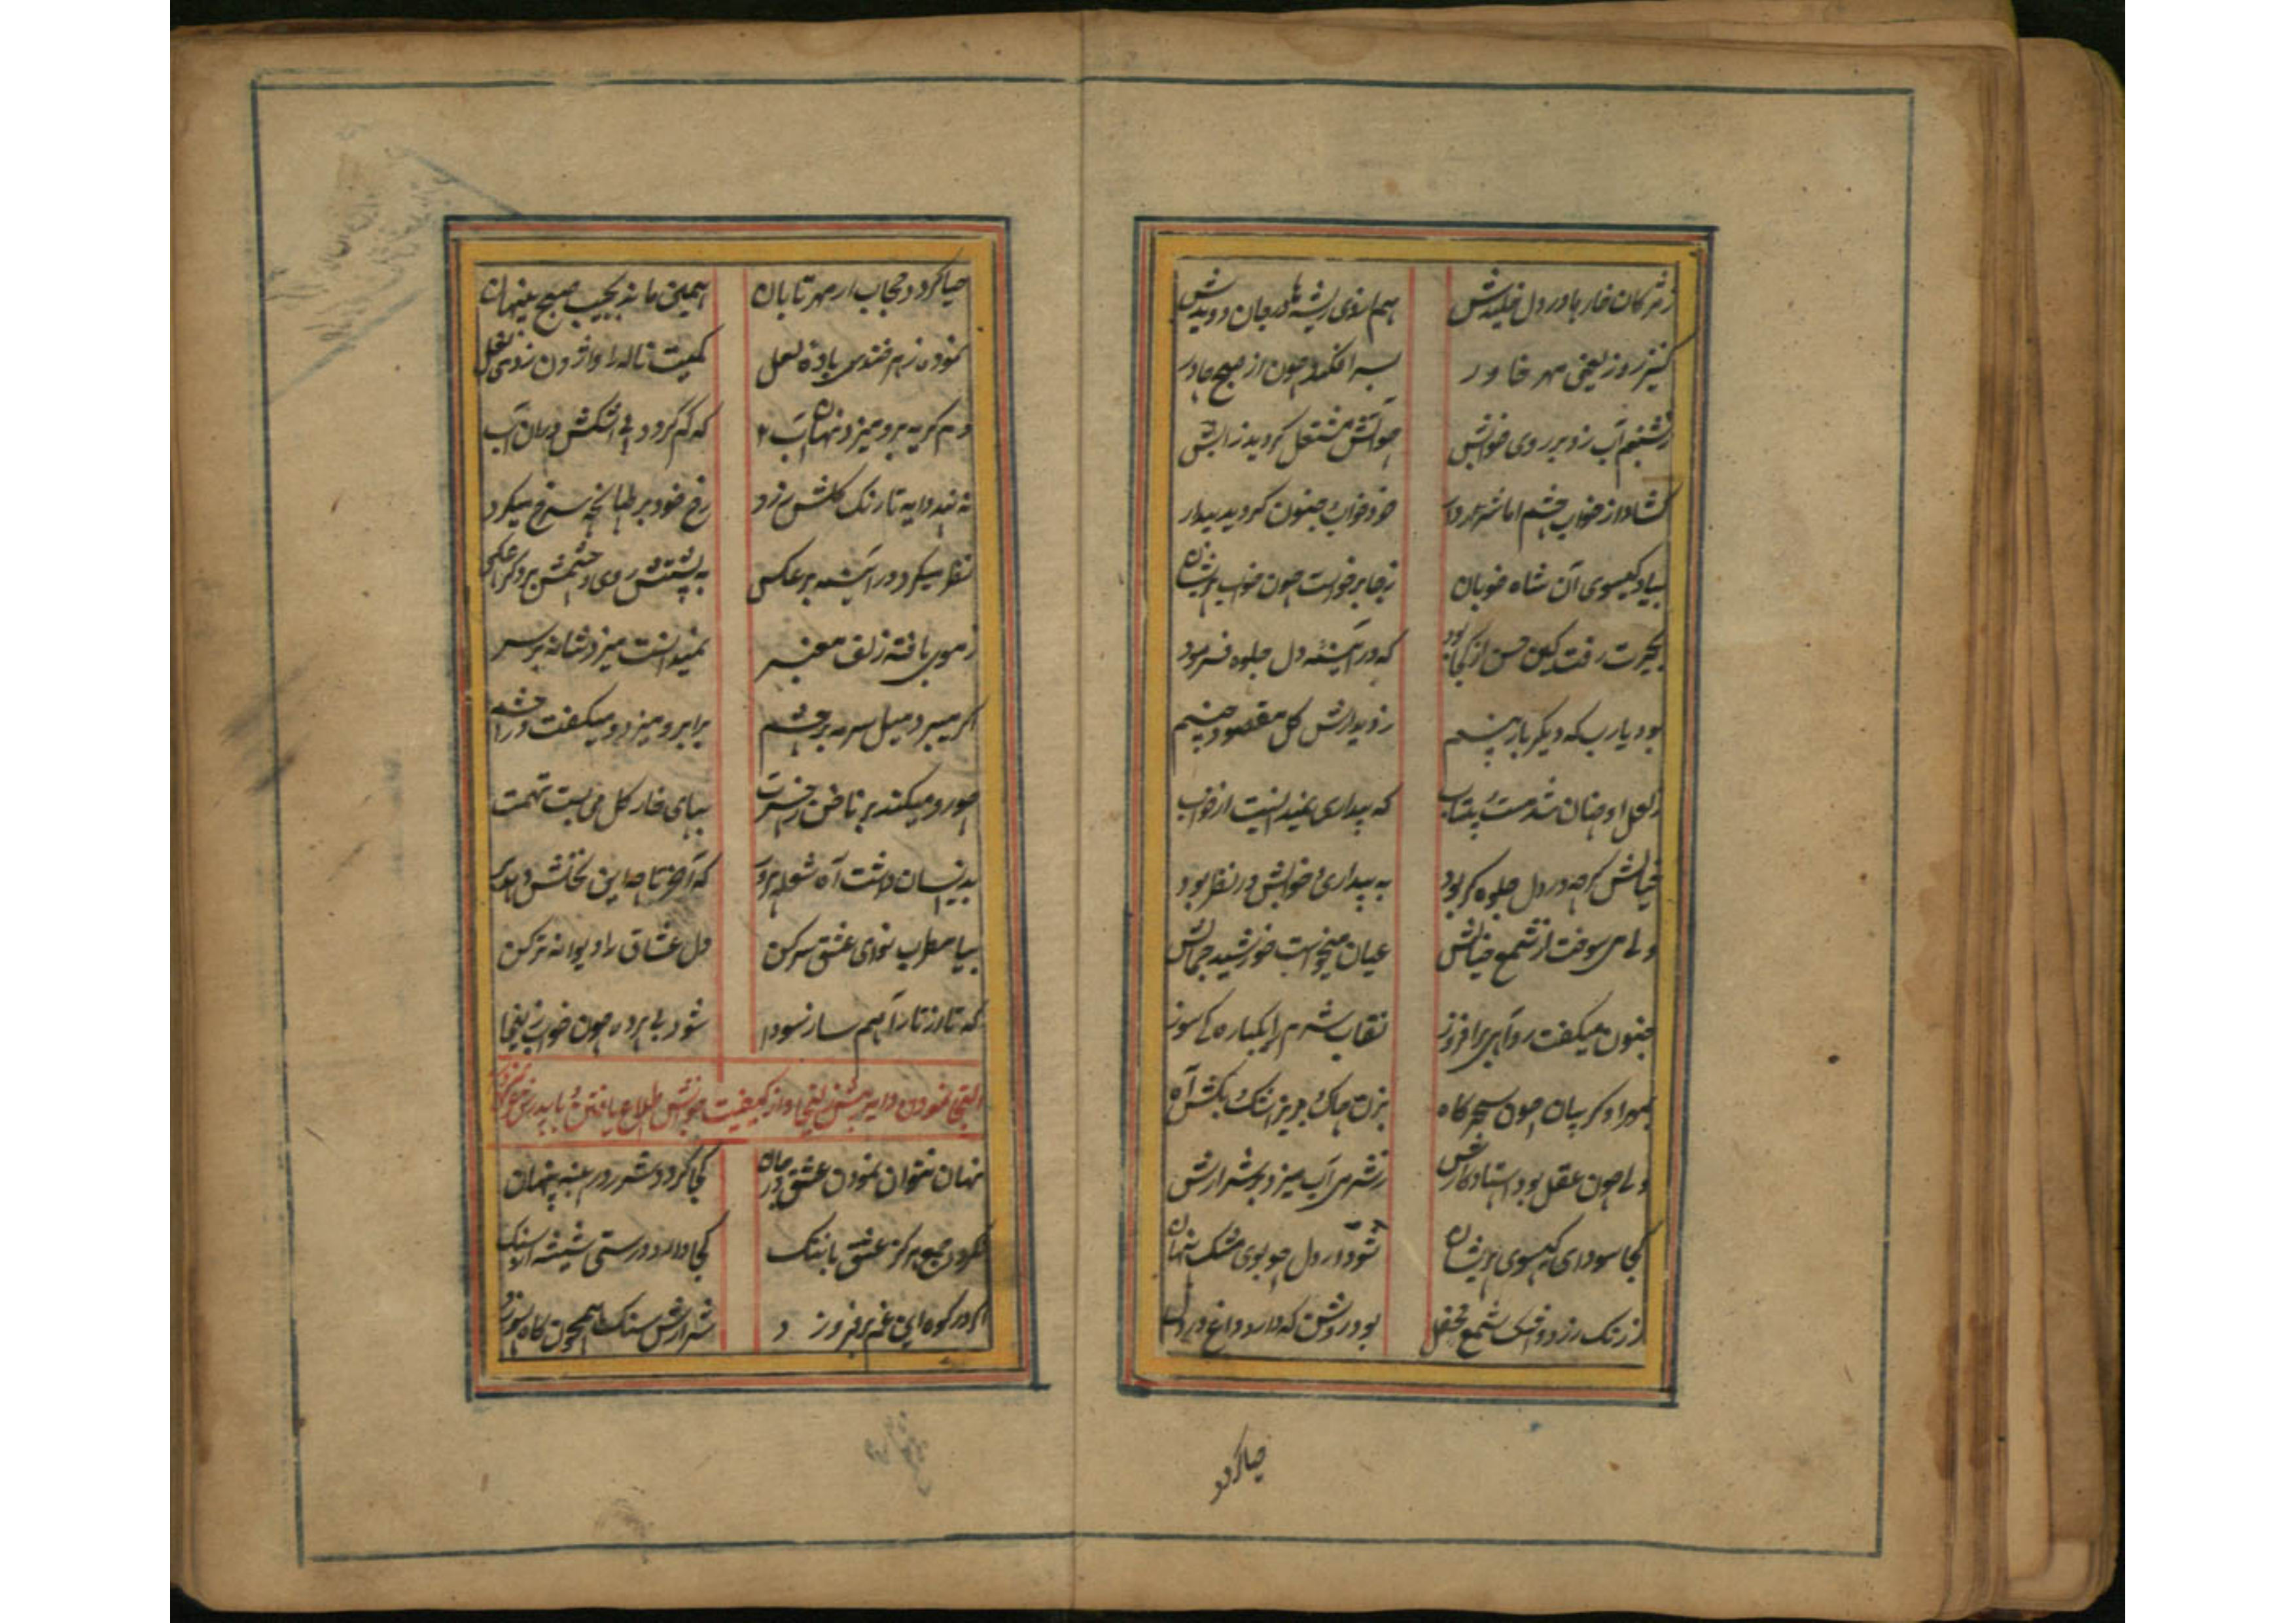 ز مژگان خارها در دل خلیدش همان سوی ریشه‌ها در جان دویدش
کنیز روز یعنی مهر خاور بسر افکند چون از صبح چادر
ز شبنم آب زد بر روی خوابش چو آتش مشتعل گردید ز آبش
گشاد از خواب چشم اما شرربار خرد خواب جنون گردید بیدار
بیاد گیسوی آن شاه خوبان ز جا برخواست چون خواب پریشان
بحیرت رفت کین حسن از کجا بود که در آئینه دل جلوه فرمود
بود یارب که دیگر باز بینم ز دیدارش گل مقصود چینم
ز لعل او چنان شد مست و بیتاب که بیداری نمیدانست از خواب
خیالش گرچه در دل جلوه‌گر بود به بیداری و خوابش در نظر بود
ولی می‌سوخت از شمع خیالش عیان میخواست خورشید جمالش
جنون میگفت رو آهی برافروز نقاب شرم را یکباره کی سوز
بمهر او گریبان چون سحرگاه بزن چاک و بریز اشک و بکش آه
ولی چون عقل بود استاد کارش ز شرم آب میزد بر شرارش
کجا سودای گیسوی پریشان شود در دل چو بوی مشک پنهان
ز رنگ زرد و اشک شمع محفل بود روشن که دارد داغ بر دل
حیا کردد
حیا کردد حجاب ار مهر تابان همین ماند بجیب صبح پنهان
نمودی زهرخندی باده لعل کمیت ناله را واژون زدی نعل
دم گریه برو میزد نهان آب که گم گردد پی اشکش در آن آب
نه بیند دایه تا رنگ گلش زرد رخ خود بر طپانچه سرخ میکرد
نظر میکرد در آئینه بر عکس به پشتش روی و چشمش بر دگر عکس
ز موی بافته زلف معنبر نمیدانست میزد شانه بر سر
اگر میبرد میل سرمه بر چشم برابرو میزد و میگفت در چشم
چو رو میکند بر ناخن ز حسرت بپای خار گل می‌بست تهمت
بدینسان داشت آه شعله پرور که آخر تا چه این نخلش دهد بر
بیا مطرب نوای عشق سر کن دل عشاق را دیوانه‌تر کن
که تا رازت را هم ساز سودا شود بی پرده چون خواب زلیخا
التجا نمودن دایه پیش زلیخا و از کیفیت خوابش اطلاع یافتن و با پدرش
نهان نتوان نمودن عشق در جان کجا گردد شرر در پنبه پنهان
نگردد جمع هرگز عشق با ننگ کجا دارد درستی شیشه از سنگ
اگر در کوه این غم برفروزد شرارش سنگ همچون کاه سوزد